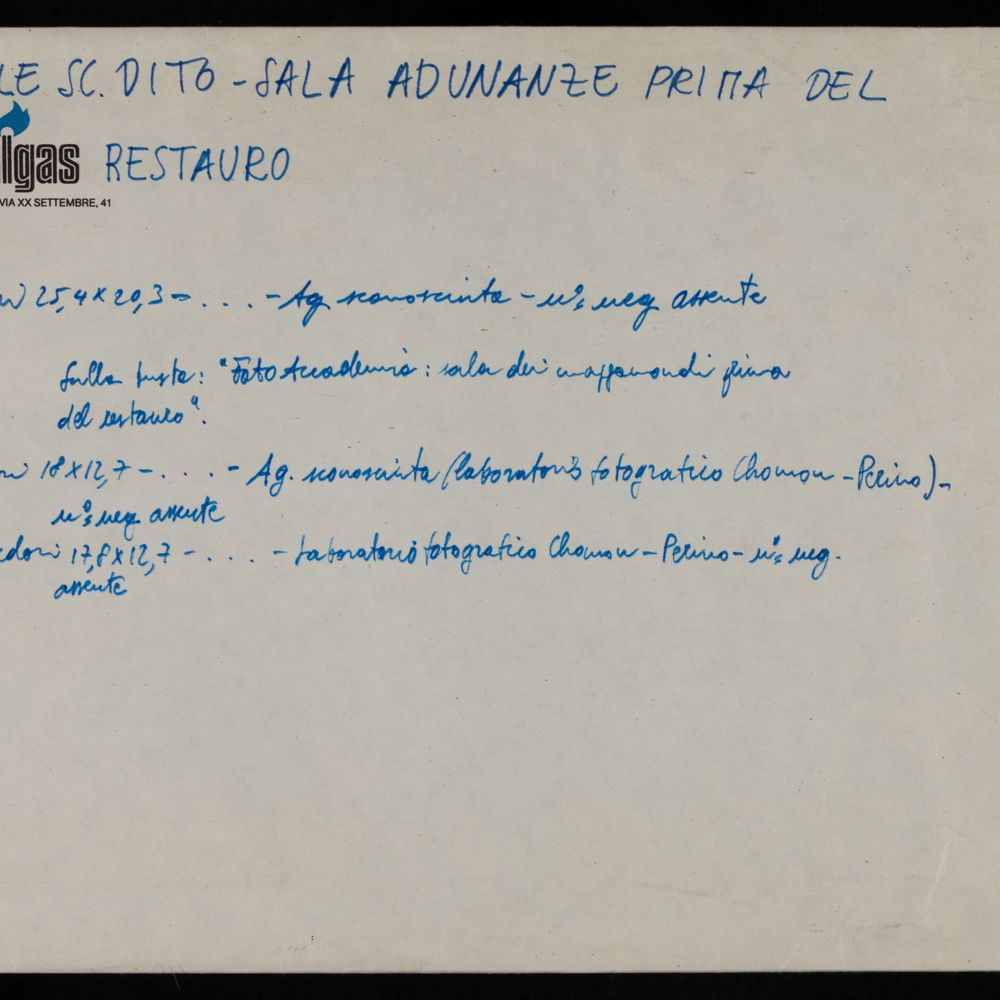 LE SC. DI TO - SALA ADUNANZE PRIMA DEL
lgas RESTAURO
VIA XX SETTEMBRE, 41
25,4 x 20,3 - . . . - Ag. sconosciuta - n°: neg assente
Sulla busta: "Foto Accademia: sala dei mappamondi prima
del restauro".
18 x 12,7 - . . . - Ag. sconosciuta (laboratorio fotografico Chomon - Perino) -
n°: neg assente
17,8 x 12,7 - . . . - Laboratorio fotografico Chomon - Perino - n°: neg.
assente